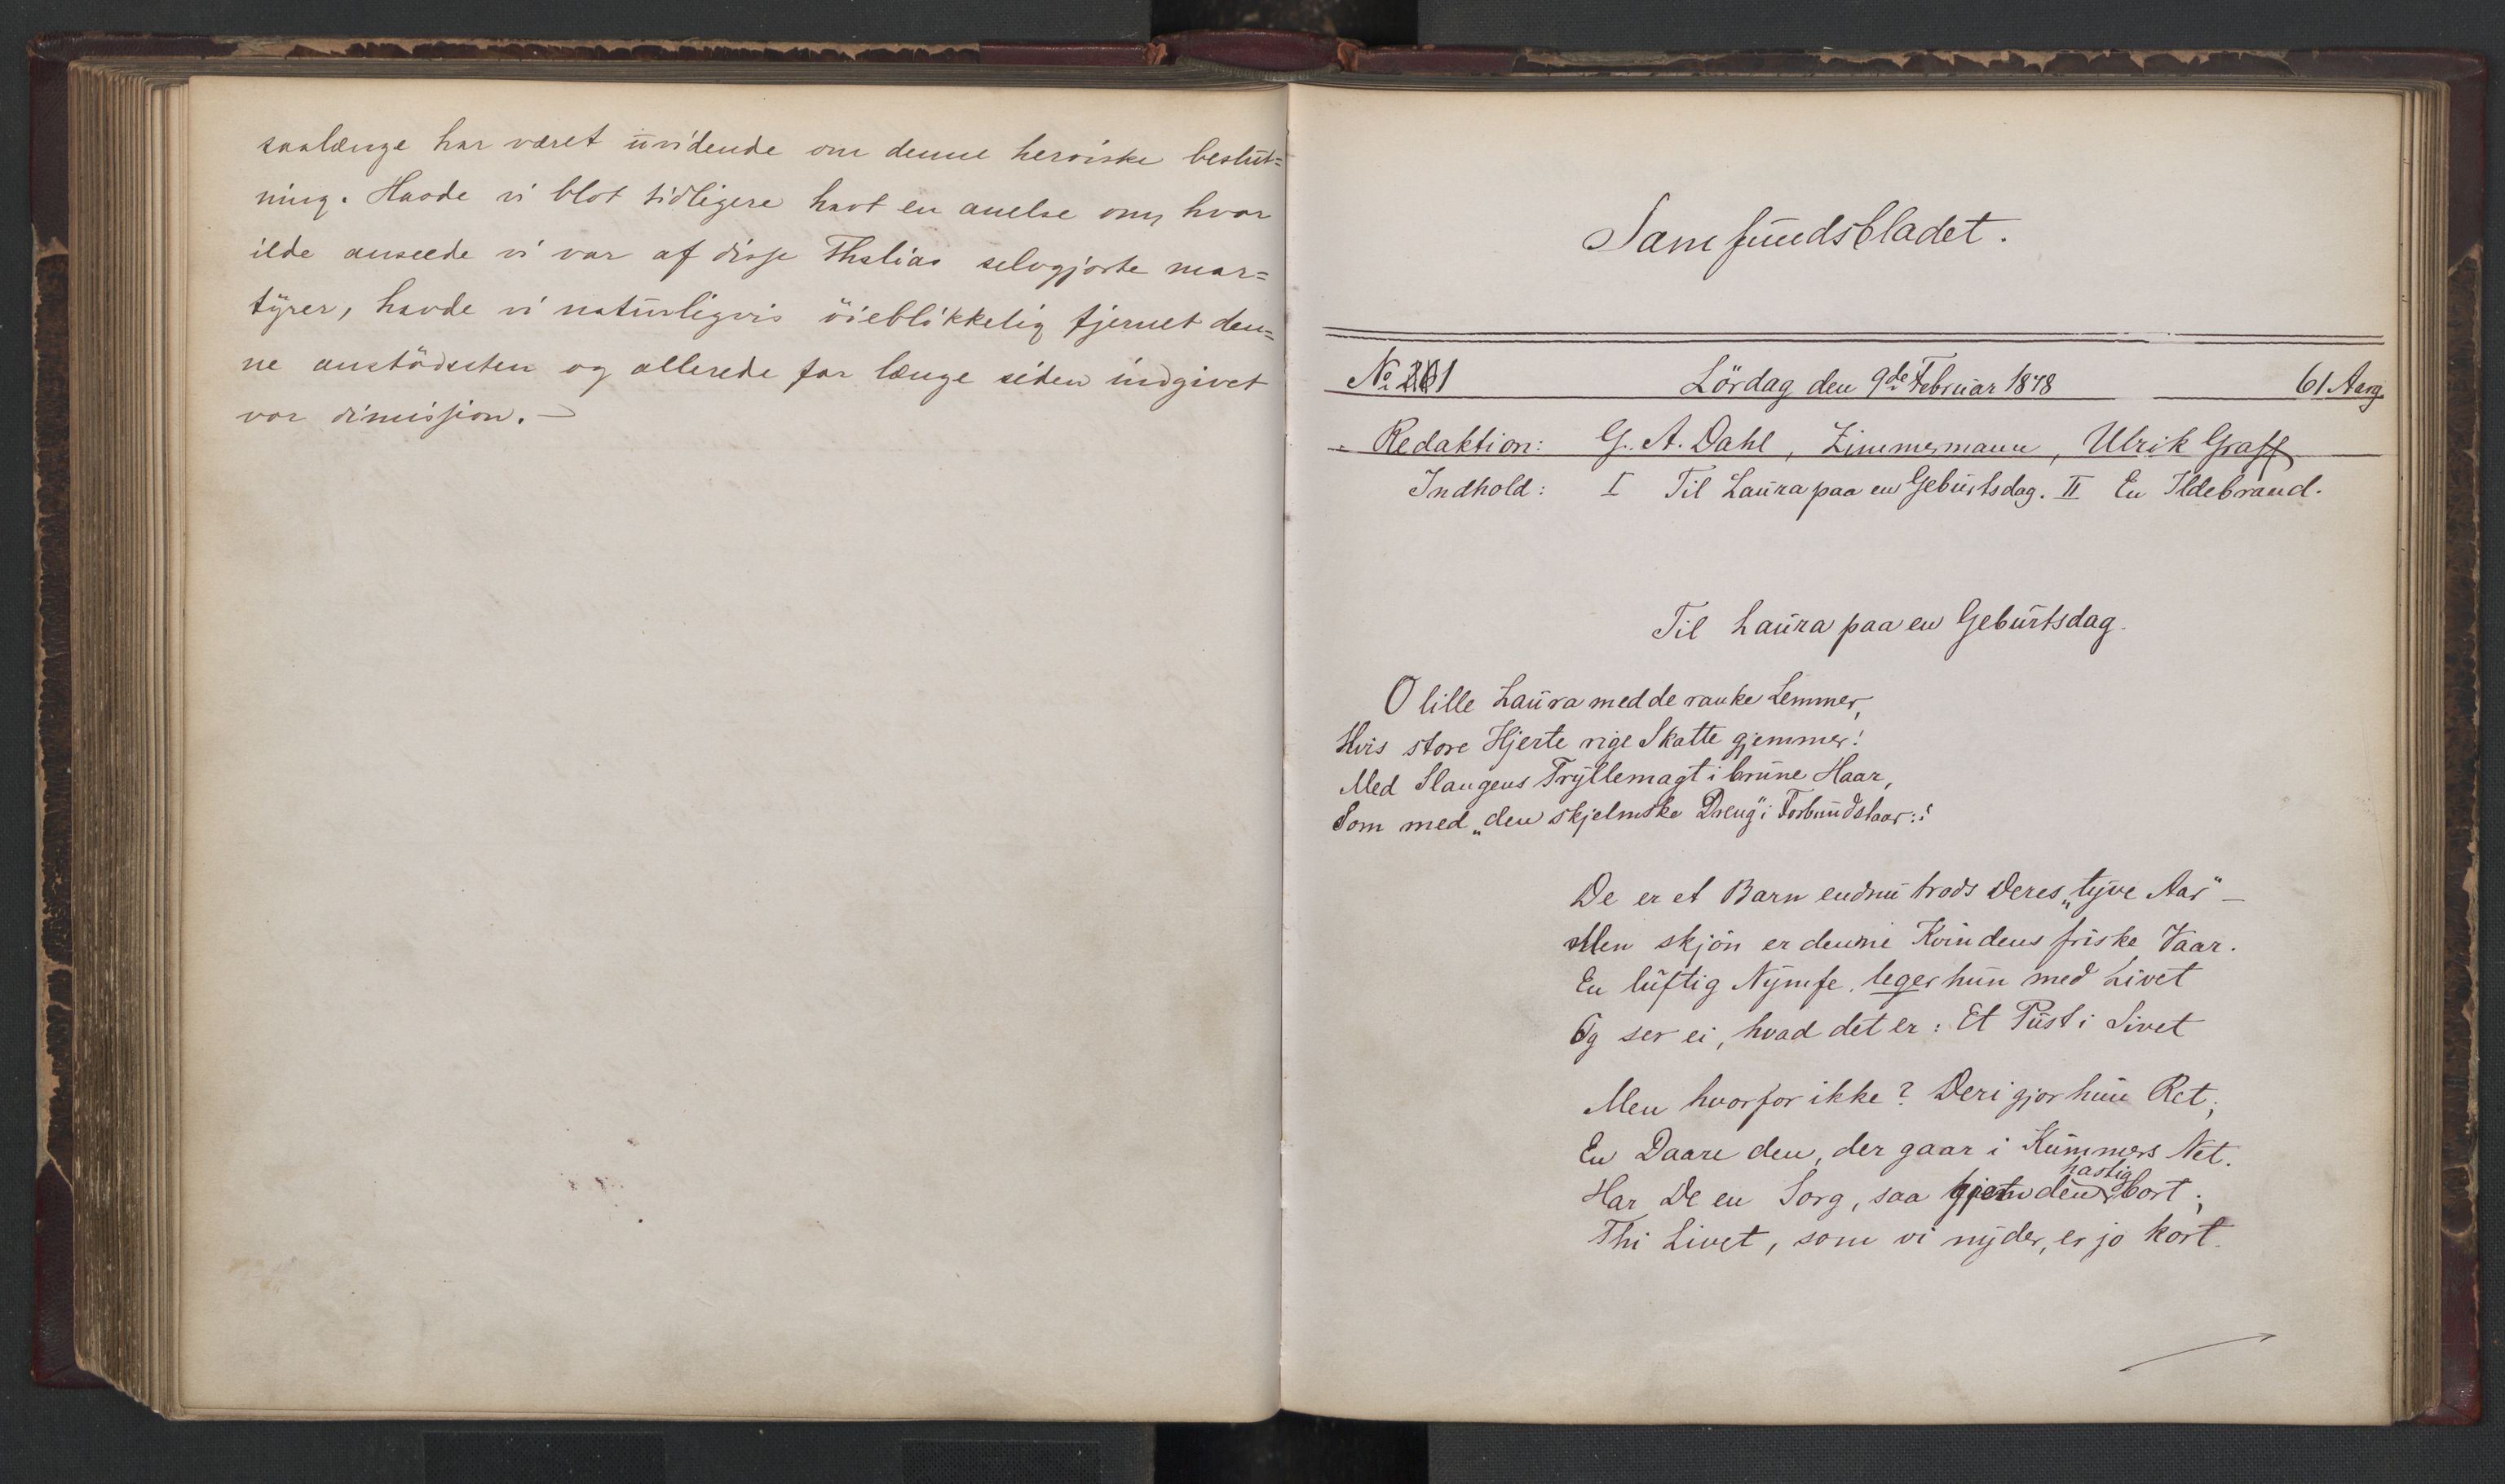 saalænge har været uvidende om denne heroiske beslut=
ning. Havde vi blot tidligere havt en anelse om, hvor
ilde anseede vi var af disse Thalias selvgjorte mar=
tyrer, havde vi naturligvis öieblikkelig fjernet den=
ne anstödssten og allerede for længe siden indgivet
vor dimission. —
Samfundsbladet.
No 1 Lördag den 9de Februar 1878 61 Aarg.
Redaktion: G. A. Dahl, Zimmermann, Ulrik Graff
Indhold: I Til Laura paa en Geburtsdag. II En Ildebrand.
Til Laura paa en Geburtsdag.
O lille Laura med de ranke Lemmer,
Hvis store Hjerte rige Skatte gjemmer!
Med Slangens Tryllemagt i brune Haar,
Som med „den skjelmske Dreng" i Forbund staar:!
De er et Barn endnu trods Deres „tyve Aar" —
Men skjön er denne Kvindens friske Vaar.
En luftig Nymfe, leger hun med Livet
Og ser ei, hvad det er: Et Pust i Sivet
Men hvorfor ikke? Deri gjor hun Ret;
En Daare den, der gaar i Kummers Net.
Har De en Sorg, saa den hastig bort;
Thi Livet, som vi nyder, er jo kort.